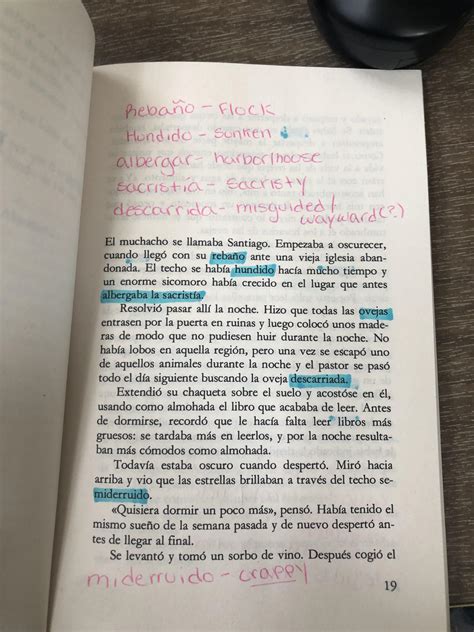 Rebaño - Flock
Hundido - Sunken
albergar - harbor/house
sacristia - Sacristy
descarrida - misguided/
wayward(?)
El muchacho se llamaba Santiago. Empezaba a oscurecer,
cuando llegó con su rebaño ante una vieja iglesia aban-
donada. El techo se había hundido hacía mucho tiempo y
un enorme sicomoro había crecido en el lugar que antes
albergaba la sacristía.
Resolvió pasar allí la noche. Hizo que todas las ovejas
entrasen por la puerta en ruinas y luego colocó unos made-
ras de modo que no pudiesen huir durante la noche. No
había lobos en aquella región, pero una vez se escapó uno
de aquellos animales durante la noche y el pastor se pasó
todo el día siguiente buscando la oveja descarriada.
Extendió su chaqueta sobre el suelo y acostóse en él,
usando como almohada el libro que acababa de leer. Antes
de dormirse, recordó que le hacía falta leer libros más
gruesos: se tardaba más en leerlos, y por la noche resulta-
ban más cómodos como almohada.
Todavía estaba oscuro cuando despertó. Miró hacia
arriba y vio que las estrellas brillaban a través del techo se-
miderruido.
«Quisiera dormir un poco más», pensó. Había tenido el
mismo sueño de la semana pasada y de nuevo despertó an-
tes de llegar al final.
Se levantó y tomó un sorbo de vino. Después cogió el
miderruido - crappy
19